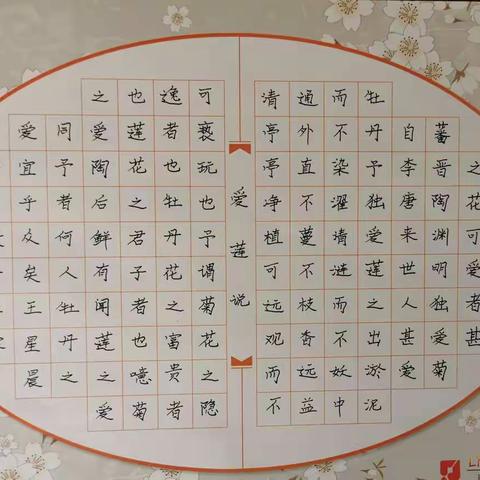 爱莲说
之花可爱者甚
蕃晋陶渊明独爱菊
自李唐来世人甚爱
牡丹予独爱莲之出淤泥
而不染濯清涟而不妖中
通外直不蔓不枝香远益
清亭亭净植可远观而不
可亵玩也予谓菊花之隐
逸者也牡丹花之富贵者
也莲花之君子者也噫菊
之爱陶后鲜有闻莲之爱
同予者何人牡丹之
爱宜乎众矣王星晨